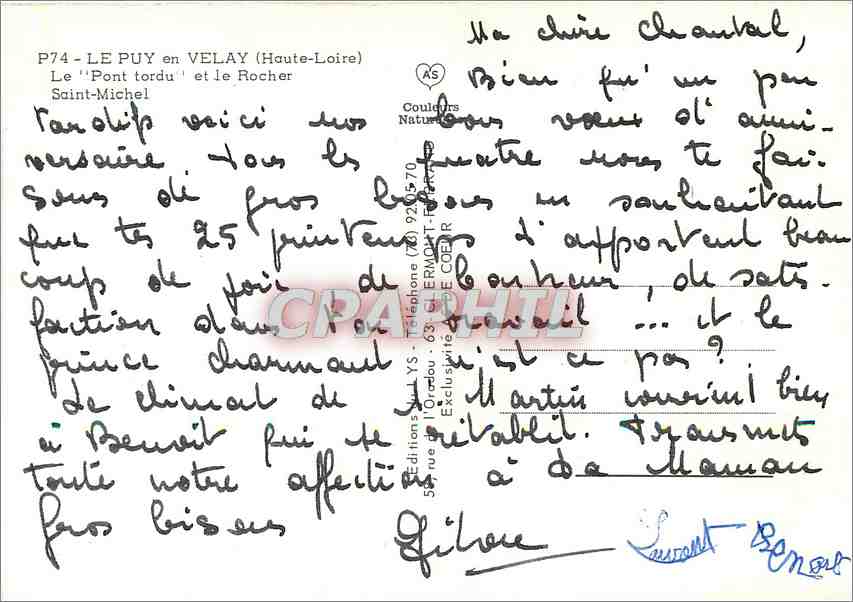 P74 - LE PUY en VELAY (Haute-Loire)
Le "Pont tordu" et le Rocher
Saint-Michel
AS
Couleurs
Naturelles
Editions du LYS - Téléphone (73) 92.05.70
rue de l'Oradou - 63 CLERMONT-FERRAND
Exclusivité AS DE COEUR
CPAPHIL
Ma chère Chantal,
Bien qu'un peu
tardifs voici nos bons voeux d'anni-
versaire tous les quatre nous te fai-
sons de gros bisous en souhaitant
que tes 25 printemps t'apportent beau
coup de joie de bonheur, de satis-
faction dans ton travail ... et le
prince charmant n'est ce pas ?
Le climat de St Martin convient bien
à Benoit qui se rétablit. Transmets
toute notre affection à ta Maman
Gros bisous
Laurent Benoit